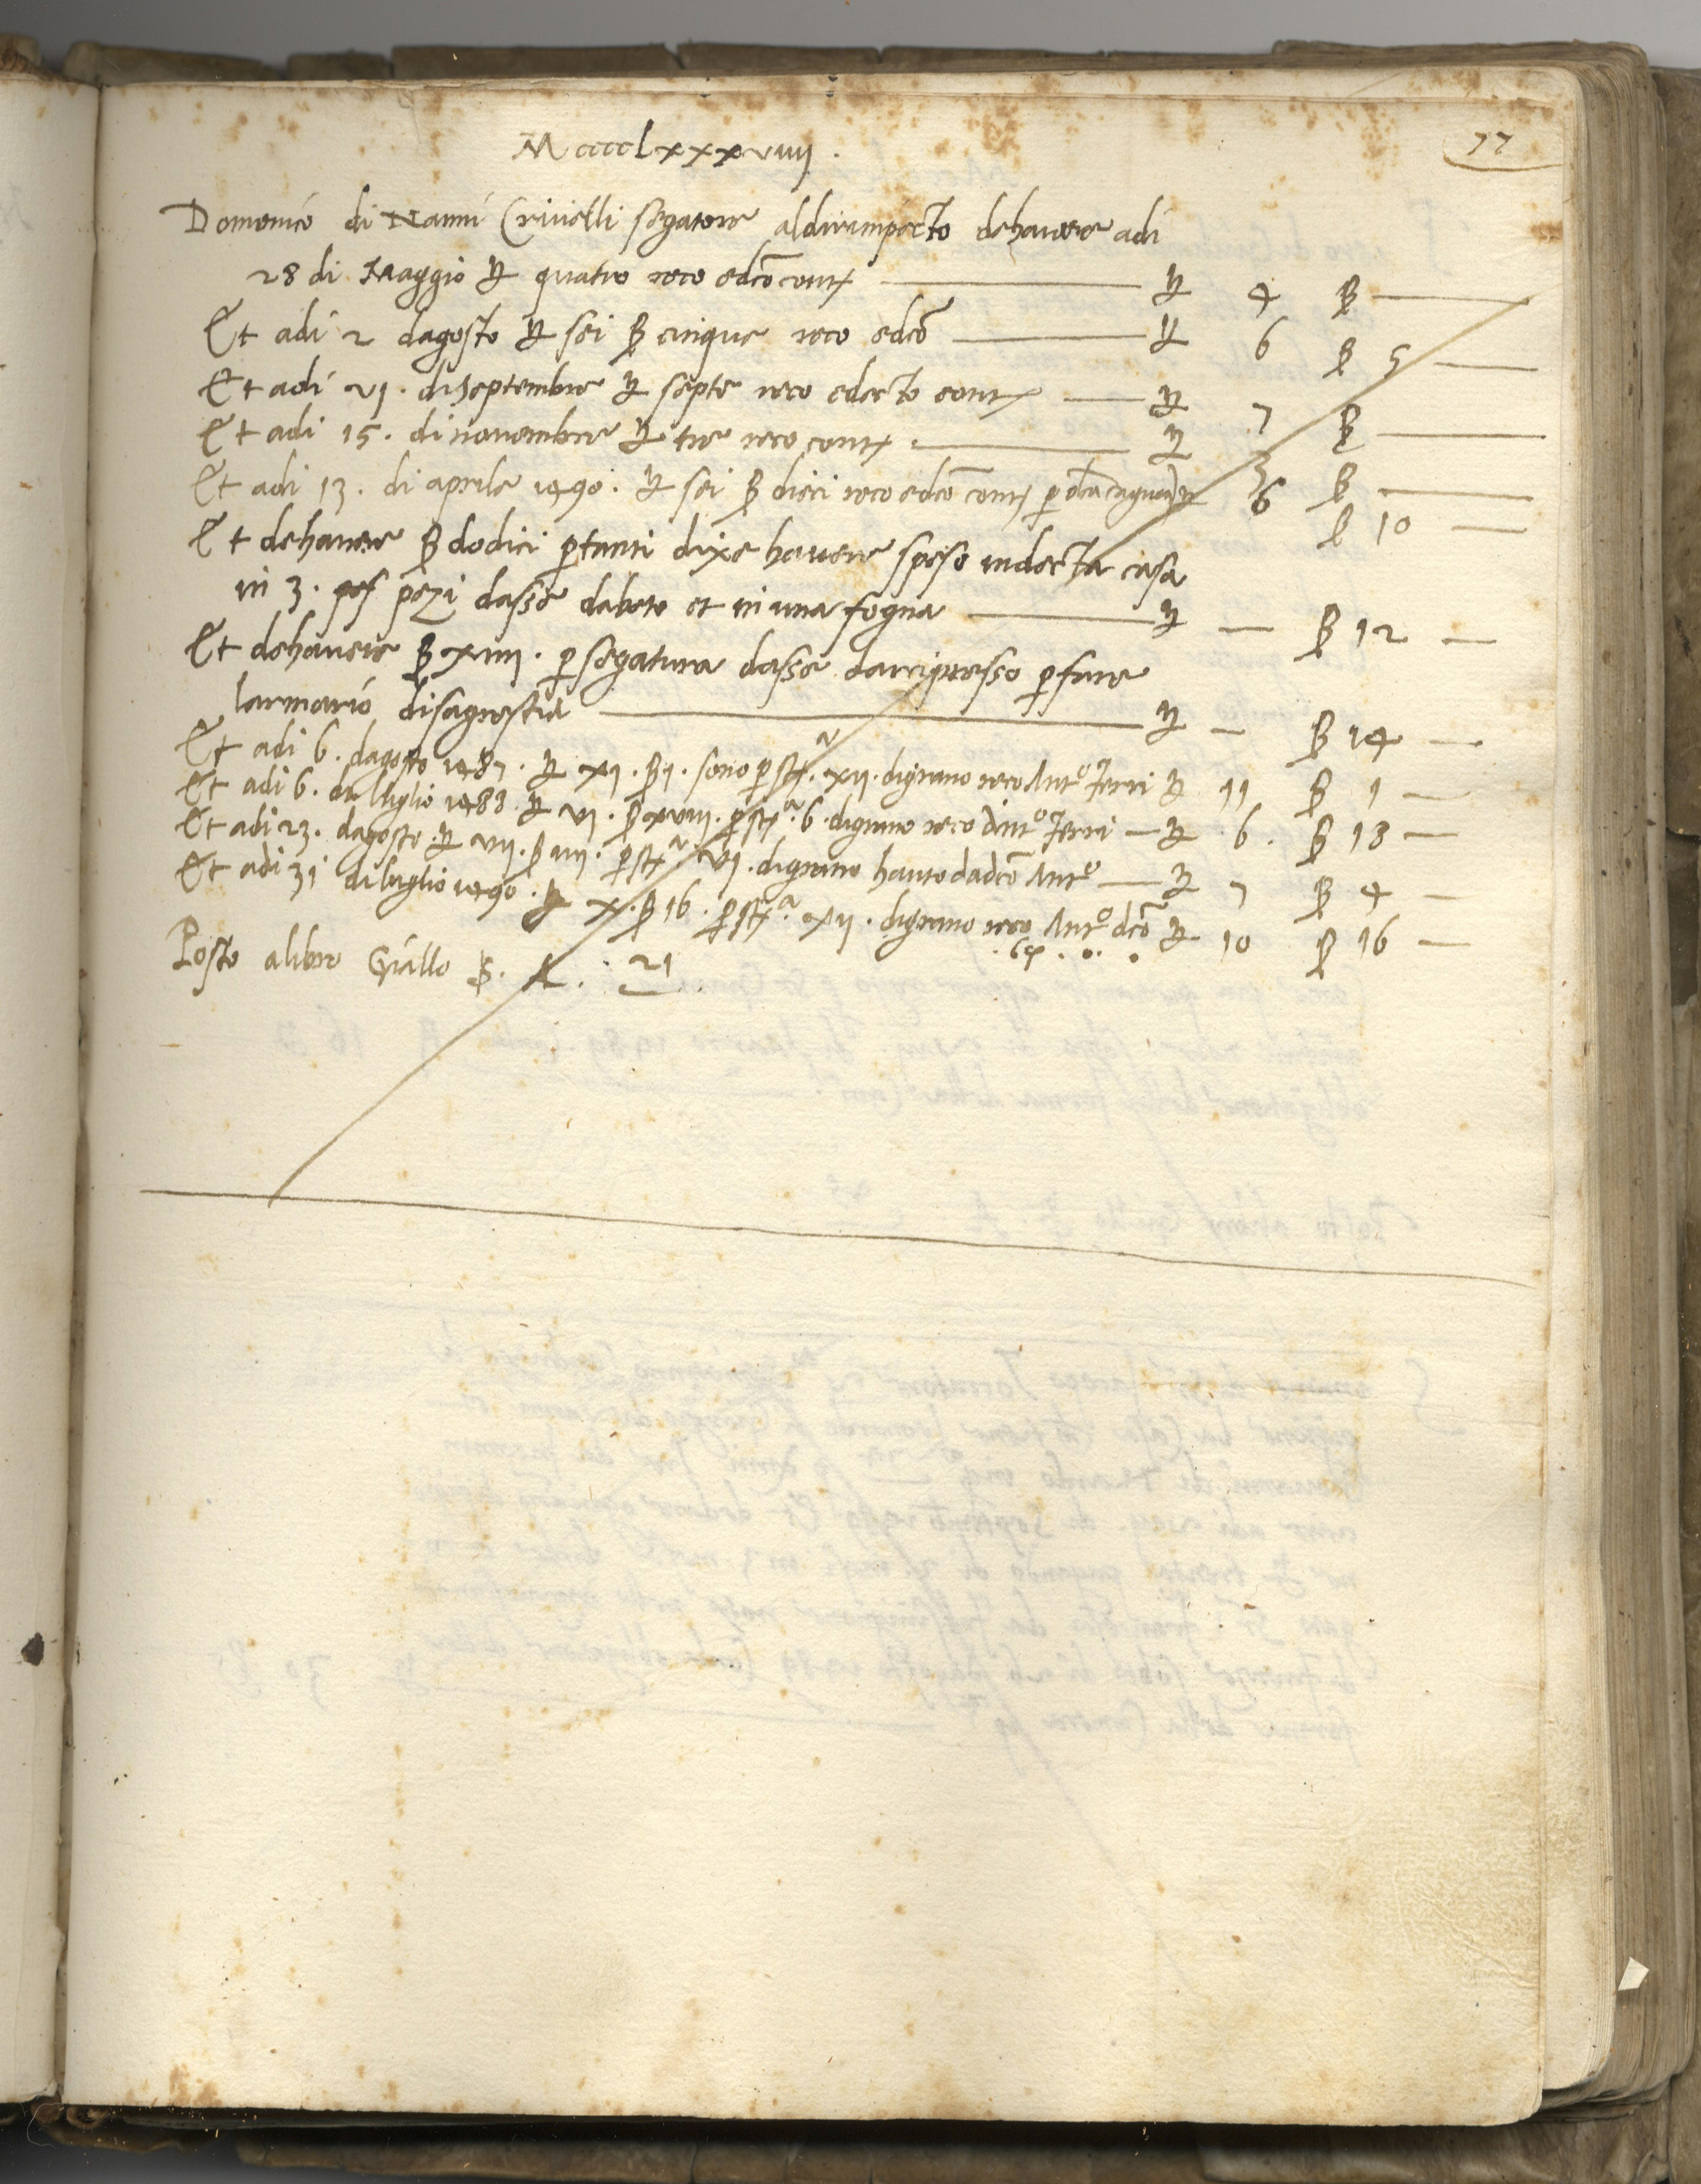 Mcccclxxxviiij.
77
Domenico di Nanni Crivelli segatore aldirimpecto dehavere adi
28 di Maggio ₶ quatro reco edcõ cont. ₶ 4 ß —
Et adi 2 dagosto ₶ sei ß cinque reco edcõ ₶ 6 ß 5 —
Et adi VI. di Septembre ₶ septe reco edecto cont. ₶ 7 ß —
Et adi 15. di novembre ₶ tre reco cont. ₶ 3 ß —
Et adi 13. di aprile 1490. ₶ sei ß dieci reco edcõ cont. p ₶ 6 ß 10 —
Et dehavere ß dodici ptanti dixe havere speso indecta casa
in 3. pezi dasse dabeto et in una fogna ₶ — ß 12 —
Et dehavere ß xiiii. p segatura dasse darcipresso p fare
larmario disagrestia ₶ — ß 14 —
Et adi 6. dagosto 1487. ₶ xi. ß i. sono p stᵃ. xii. digrano reco Antᵒ Ferri ₶ 11 ß 1 —
Et adi 6. di luglio 1488 ₶ VI. ß xviii. p stᵃ. 6. digrano reco Antᵒ Ferri — ₶ 6. ß 18 —
Et adi 23. dagosto ₶ VII. ß iiii. p stᵃ VI. digrano hauto dadcõ Antᵒ — ₶ 7 ß 4 —
Et adi 31 di luglio 1490. ₶ x. ß 16. p stᵃ. xii. digrano reco Antᵒ dcõ ₶ 10 ß 16 —
Posto alibro Giallo S. A. 21